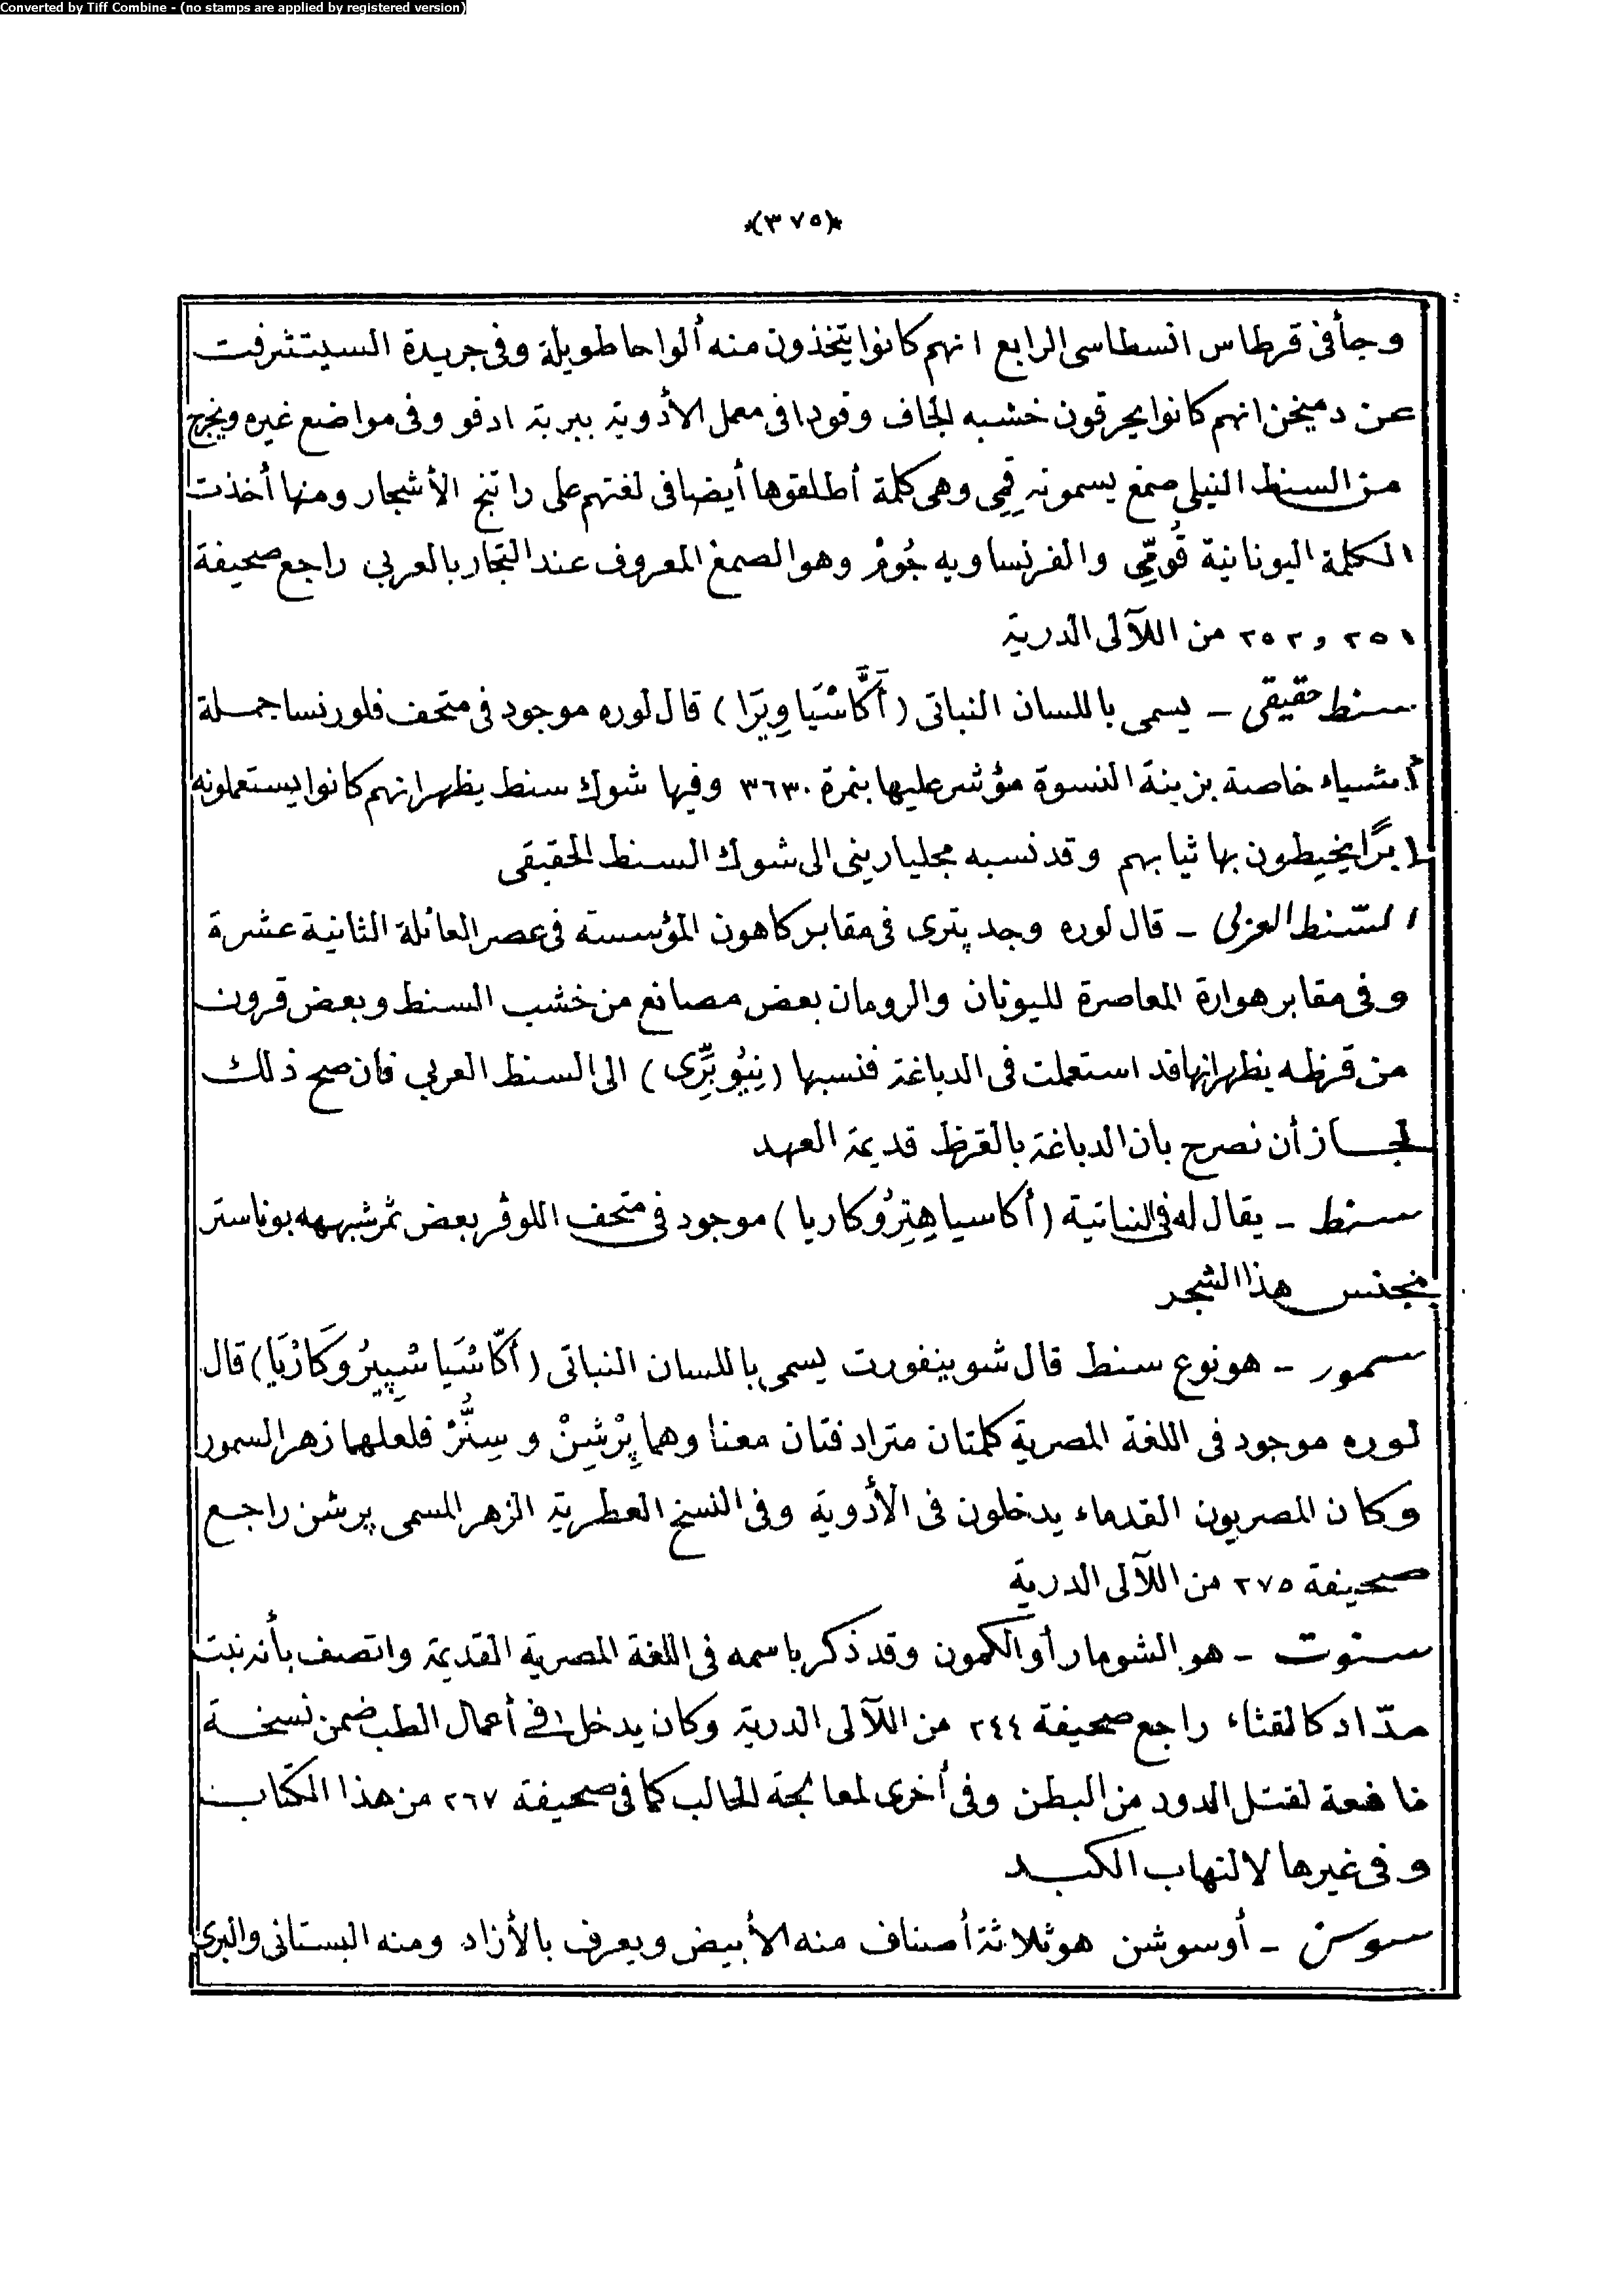 Converted by Tiff Combine - (no stamps are applied by registered version)
*(٣٧٥)*
وجأ فى قرطاس انسطاسى الرابع انهم كانوا يتخذون منه ألواحا طويلة وفى جريدة السيتشرفت
عن دميخن انهم كانوا يحرقون خشبه الجاف وقودا فى معمل الأدوية ببربة ادفو وفى مواضع غيره ويخرج
من السنط النيلى صمغ يسمونه قِمِى وهى كلمة أطلقوها أيضا فى لغتهم على راتنج الأشجار ومنها أخذت
الكلمة اليونانية قُومِّى والفرنساويه جُومْ وهو الصمغ المعروف عند التجار بالعربى راجع صحيفة
٢٥١ و٢٥٢ من اللآلى الدرية
سنط حقيقى - يسمى باللسان النباتى (أَكَّاسْيَا وِيرَا) قال لوره موجود فى متحف فلورنسا جملة
أشياء خاصة بزينة النسوة مؤشر عليها بنمرة ٣٦٣٠ وفيها شوك سنط يظهر انهم كانوا يستعملونه
إبرًا يخيطون بها ثيابهم وقد نسبه مجليارينى الى شوك السنط الحقيقى
السّنط العربى - قال لوره وجد پترى فى مقابر كاهون المؤسسة فى عصر العائلة الثانية عشرة
وفى مقابر هوارة المعاصرة لليونان والرومان بعض مصانع من خشب السنط وبعض قرون
من قرظه يظهر انها قد استعملت فى الدباغة فنسبها (نِيُوبِّرِى) الى السنط العربى فان صح ذلك
لجاز أن نصرح بان الدباغة بالقرظ قديمة العهد
سنط - يقال له فى النباتية (أكاسيا هِتِرُوكاريا) موجود فى متحف اللوڤر بعض ثمر شبهه بوناستر
بجنس هذا الشجر
سمور - هو نوع سنط قال شوينفورت يسمى باللسان النباتى (أكَّاسْيَا سْپِيرُوكَارْپَا) قال
لوره موجود فى اللغة المصرية كلمتان مترادفتان معنا وهما پِرْشِنْ و سِنُّرْ فلعلهما زهر السمور
وكان المصريون القدماء يدخلون فى الأدوية وفى النسخ العطرية الزهر المسمى پرشن راجع
صحيفة ٢٧٥ من اللآلى الدرية
سنوت - هو الشومار أو الكمون وقد ذكر باسمه فى اللغة المصرية القديمة واتصف بأنه نبت
مدّاد كالقثاء راجع صحيفة ٢٤٤ من اللآلى الدرية وكان يدخل فى أعمال الطب ضمن نسخة
نافعة لقتل الدود من البطن وفى أخرى لمعالجة الحالب كما فى صحيفة ٢٦٧ من هذا الكتاب
وفى غيرها لالتهاب الكبد
سوسن - أو سوشن هو ثلاثة أصناف منه الأبيض ويعرف بالأزاد ومنه البستانى والبرى